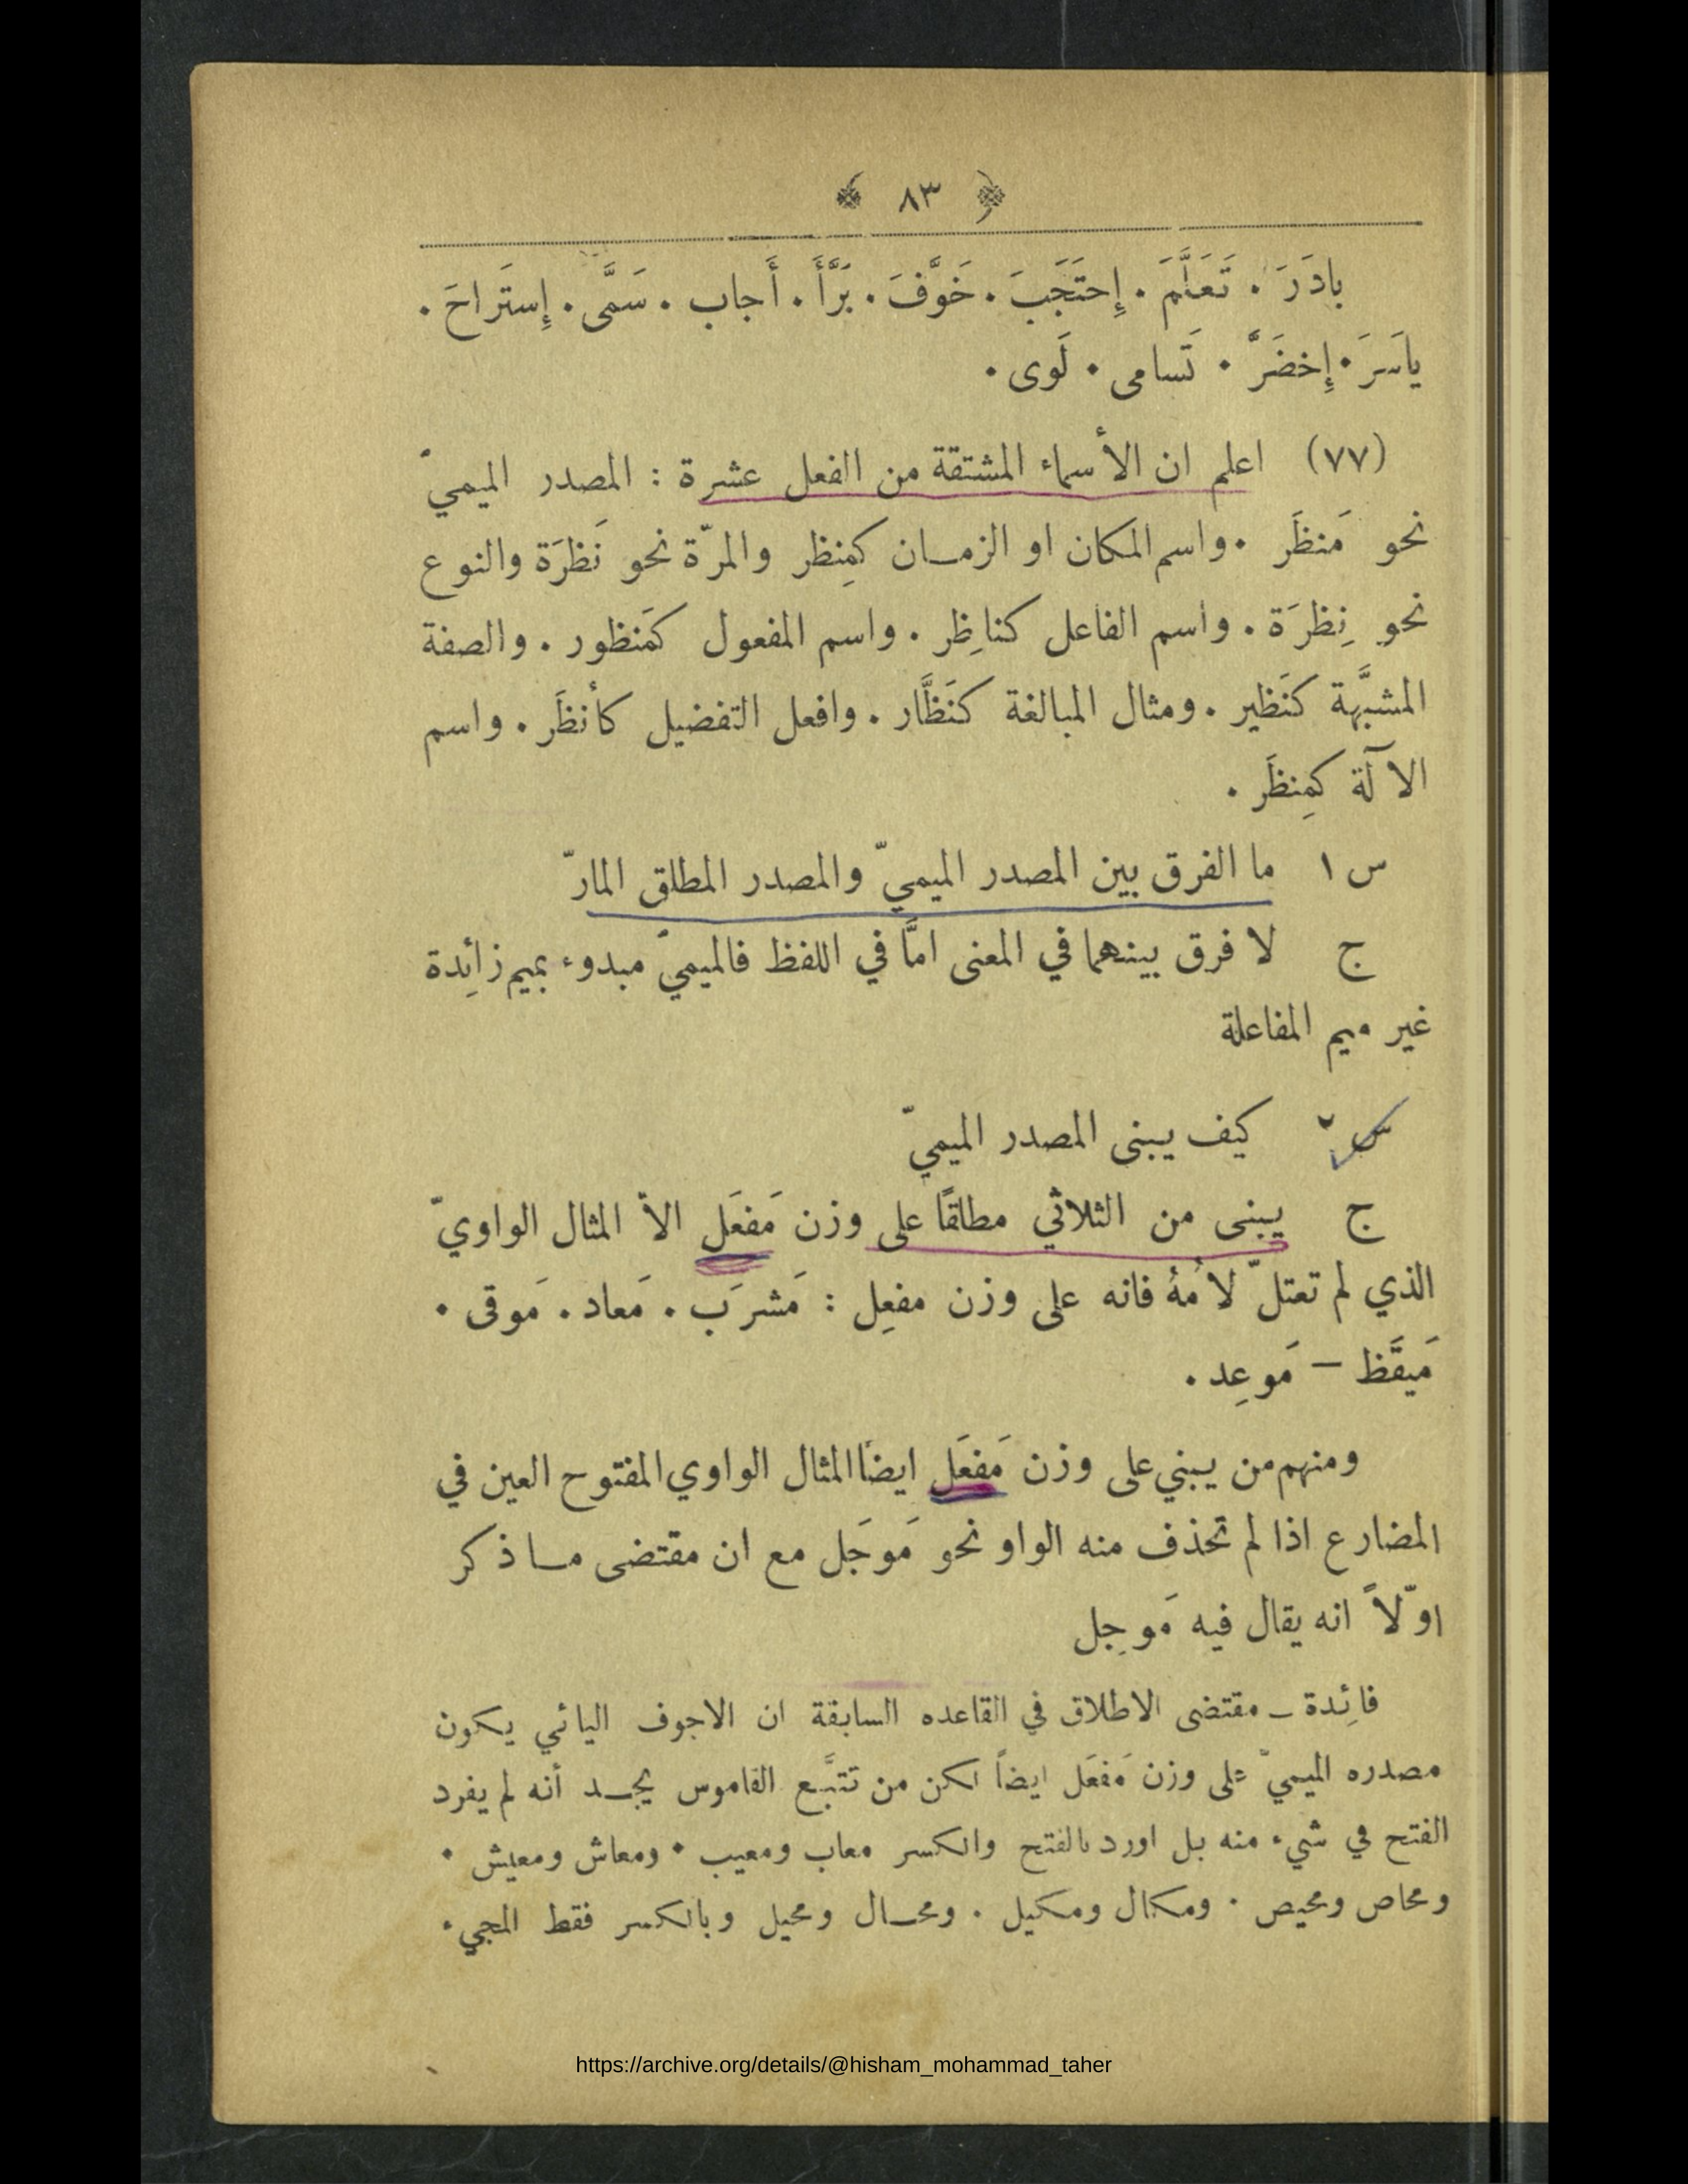 ﴿ ٨٣ ﴾
بادَرَ . تَعَلَّمَ . إِحتَجَبَ . خَوَّفَ . بَرَّأَ . أَجاب . سَمَّى . إِستَراحَ .
ياسَرَ . إِخضَرَّ . تَسامى . لَوى .
(٧٧) اعلم ان الأسماء المشتقة من الفعل عشرة : المصدر الميميّ
نحو مَنظَر . واسم المكان او الزمـان كمِنظر والمرّة نحو نَظرَة والنوع
نحو نِظرَة . واسم الفاعل كناظِر . واسم المفعول كمَنظور . والصفة
المشبَّهة كنَظير . ومثال المبالغة كنَظَّار . وافعل التفضيل كأنظَر . واسم
الآلة كمِنظَر .
س ١ ما الفرق بين المصدر الميميّ والمصدر المطلق المارّ
ج لا فرق بينهما في المعنى امَّا في اللفظ فالميميّ مبدوء بميم زائِدة
غير ميم المفاعلة
س ٢ كيف يبنى المصدر الميميّ
ج يبنى من الثلاثي مطلقًا على وزن مَفعَل الاّ المثال الواويّ
الذي لم تعتلّ لامُهُ فانه على وزن مفعِل : مَشرَب . مَعاد . مَوقى .
مَيقَظ – مَوعِد .
ومنهم من يبني على وزن مَفعَل ايضًا المثال الواوي المفتوح العين في
المضارع اذا لم تحذف منه الواو نحو مَوجَل مع ان مقتضى مـا ذكر
اوّلاً انه يقال فيه مَوجِل
فائِدة – مقتضى الاطلاق في القاعده السابقة ان الاجوف اليائي يكون
مصدره الميميّ على وزن مَفعَل ايضاً لكن من تتبَّع القاموس يجـد أنه لم يفرد
الفتح في شيء منه بل اورد بالفتح والكسر معاب ومعيب . ومعاش ومعيش .
ومحاص ومحيص . ومكال ومكيل . ومحـال ومحيل وبالكسر فقط المجيء
https://archive.org/details/@hisham_mohammad_taher